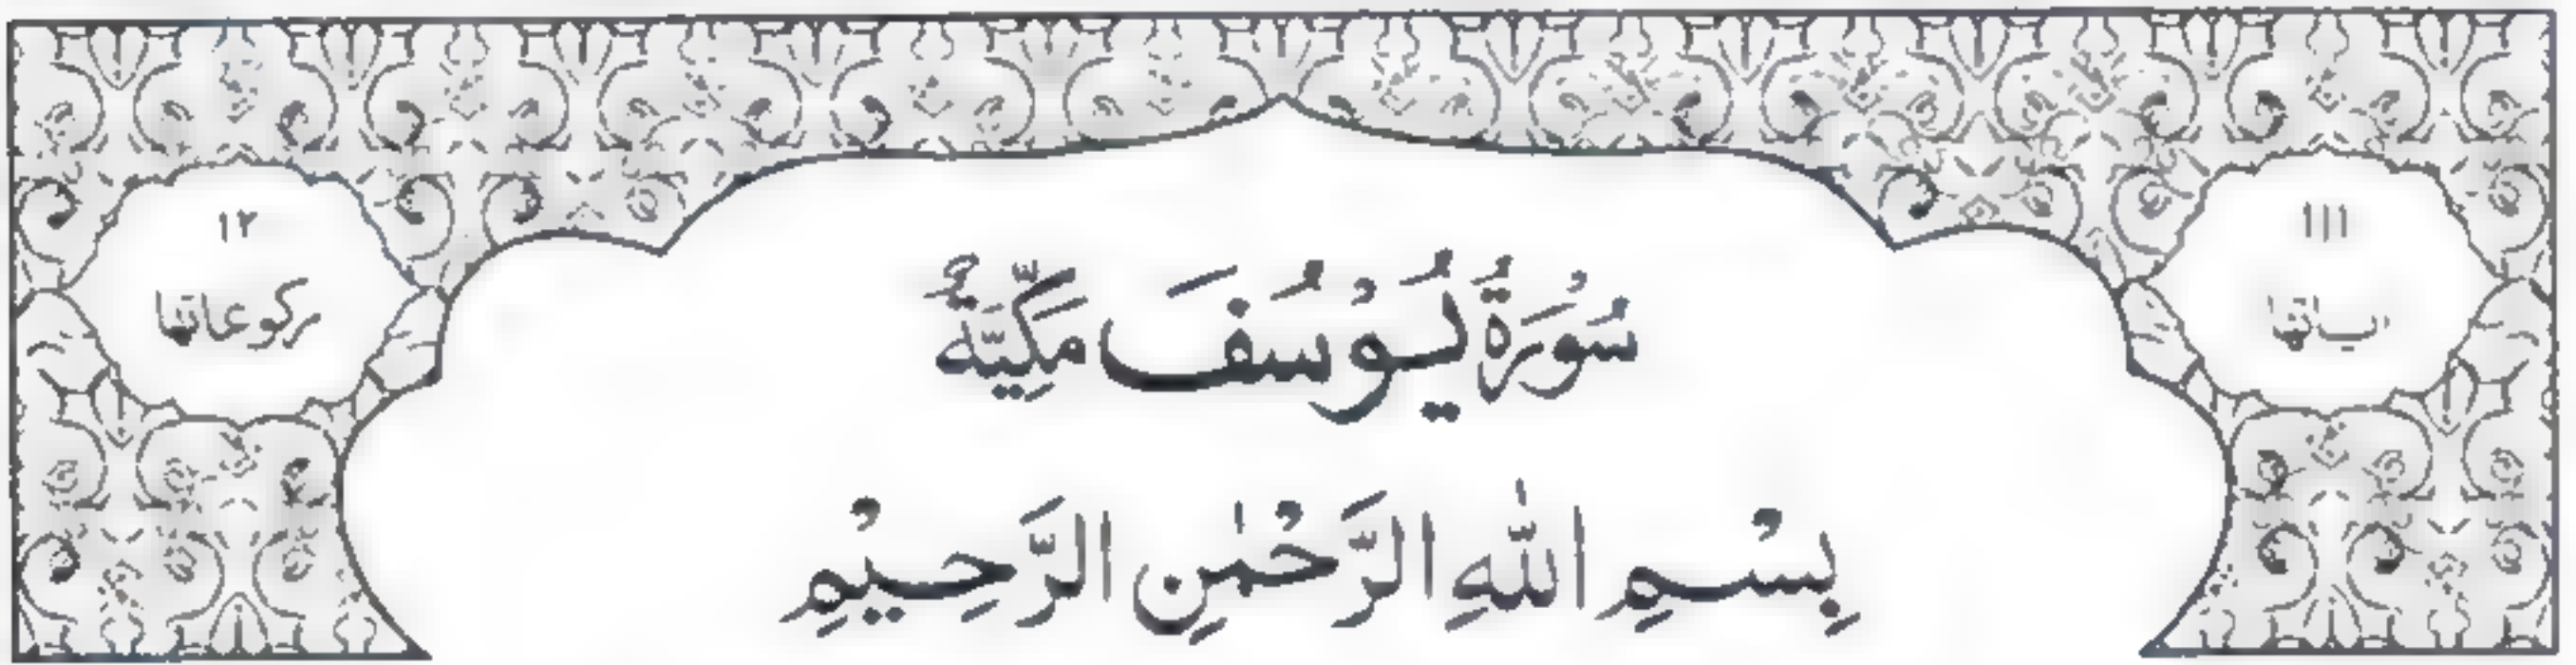 ۱۱۱
اٰیاتها
سُوْرَةُ يُوْسُفَ مَكِّيَّةٌ
۱۲
رکوعاتها
بِسْمِ اللّٰهِ الرَّحْمٰنِ الرَّحِيْمِ